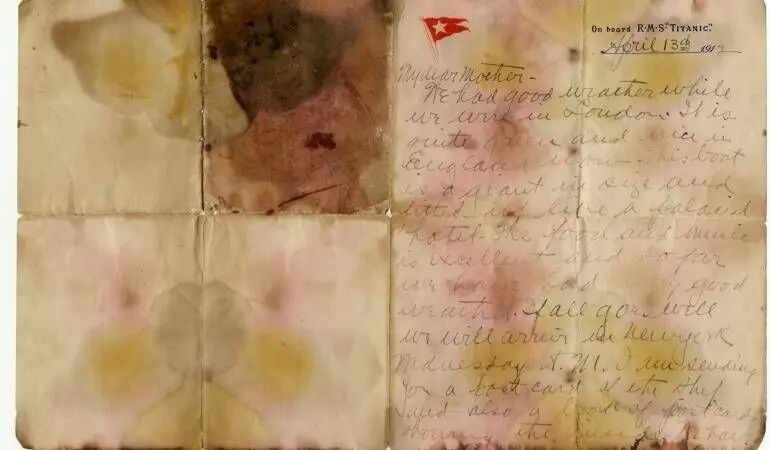 On board R·M·S "TITANIC".
April 13th 1912
My dear Mother-
We had good weather while
we were in London. It is
quite green and nice in
England now. This boat
is a giant in size and
fitted up like a palacid
hotel. The food and music
is excellent and so far
we have had very good
weather. If all goes well
we will arrive in New york
Wednesday A.M. I am sending
you a post card of the ship
and also a book of post cards
showing the inside